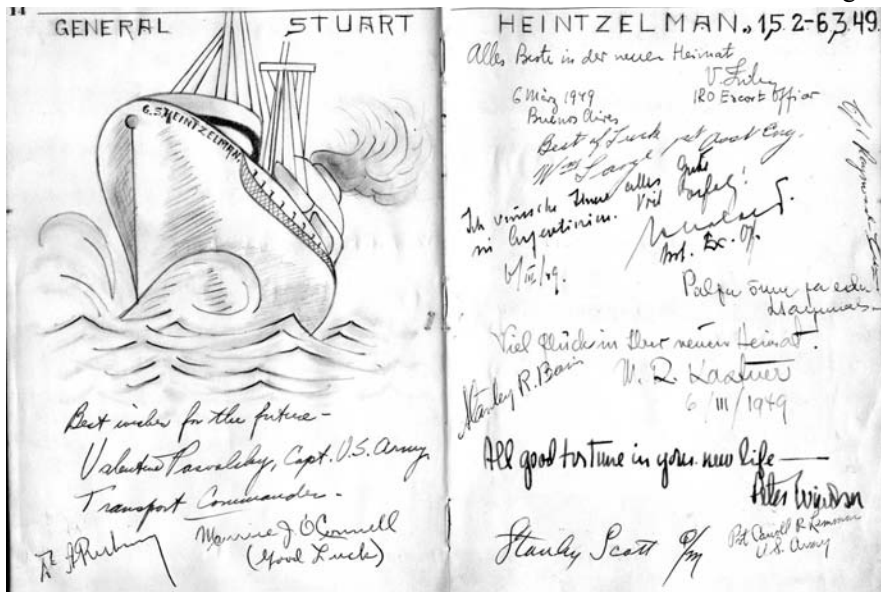 14
GENERAL STUART
G.S.HEINTZELMAN
Best wishes for the future -
Valentine Pasvolsky, Capt. U.S. Army
Transport Commander -
Maurice J. O'Connell
(Good Luck)
HEINTZELMAN,, 15.2-6.3.49
Alles Beste in der neuen Heimat
V.
6 März 1949
IRO Escort Officer
Buenos Aires
Best of Luck
Wm Lange
Ich wünsche Ihnen alles Gute
in Argentinien. Viel Erfolg!
6/III/49.
Palju õnne ja edu
Viel Glück in Ihrer neuen Heimat!
Stanley R. Bain
W. R. Kastner
6/III/1949
All good fortune in your new life
Peter
Stanley Scott
Pvt Carroll R
U.S. Army